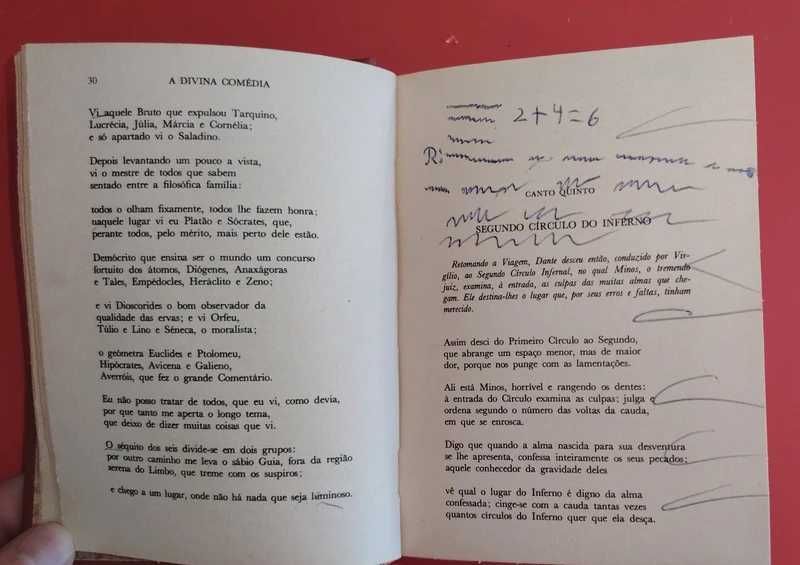 30
A DIVINA COMÉDIA
Vi aquele Bruto que expulsou Tarquino,
Lucrécia, Júlia, Márcia e Cornélia;
e só apartado vi o Saladino.
Depois levantando um pouco a vista,
vi o mestre de todos que sabem
sentado entre a filosófica família:
todos o olham fixamente, todos lhe fazem honra;
naquele lugar vi eu Platão e Sócrates, que,
perante todos, pelo mérito, mais perto dele estão.
Demócrito que ensina ser o mundo um concurso
fortuito dos átomos, Diógenes, Anaxágoras
e Tales, Empédocles, Heráclito e Zeno;
e vi Dioscorides o bom observador da
qualidade das ervas; e vi Orfeu,
Túlio e Lino e Séneca, o moralista;
o geómetra Euclides e Ptolomeu,
Hipócrates, Avicena e Galieno,
Averróis, que fez o grande Comentário.
Eu não posso tratar de todos, que eu vi, como devia,
por que tanto me aperta o longo tema,
que deixo de dizer muitas coisas que vi.
O séquito dos seis divide-se em dois grupos:
por outro caminho me leva o sábio Guia, fora da região
serena do Limbo, que treme com os suspiros;
e chego a um lugar, onde não há nada que seja luminoso.
2+4=6
R:
CANTO QUINTO
SEGUNDO CÍRCULO DO INFERNO
Retomando a Viagem, Dante desceu então, conduzido por Vir-
gílio, ao Segundo Círculo Infernal, no qual Minos, o tremendo
juiz, examina, à entrada, as culpas das muitas almas que che-
gam. Ele destina-lhes o lugar que, por seus erros e faltas, tinham
merecido.
Assim desci do Primeiro Círculo ao Segundo,
que abrange um espaço menor, mas de maior
dor, porque nos punge com as lamentações.
Ali está Minos, horrível e rangendo os dentes:
à entrada do Círculo examina as culpas; julga e
ordena segundo o número das voltas da cauda,
em que se enrosca.
Digo que quando a alma nascida para sua desventura
se lhe apresenta, confessa inteiramente os seus pecados;
aquele conhecedor da gravidade deles
vê qual o lugar do Inferno é digno da alma
confessada; cinge-se com a cauda tantas vezes
quantos círculos do Inferno quer que ela desça.